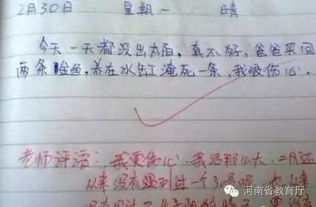 2月30日 星期一 晴
今天一天都没出太阳，真不好，爸爸买回
两条鱼，养在水缸淹死一条，我很伤心。
老师评语：我更伤心，我活那么大，二月还
从来没有遇到过一个30号呢
河南省教育厅